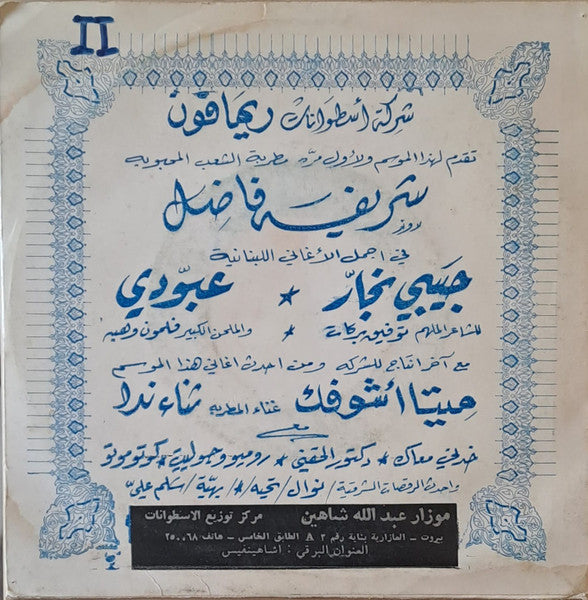 II
شركة أسطوانات ريمافون
تقدم لهذا الموسم ولأول مرّه مطربة الشعب المحبوبه
شريفه فاضل
في اجمل الأغاني اللبنانية
جَيبي نجّار ★ عبّودي
للشاعر الملهم توفيق بركات ★ والملحن الكبير فلمون وهبه
مع آخر انتاج للشركه ومن احدث اغاني هذا الموسم
ميتا أشوفك غناء المطربه ثناء ندا
مع
خدني معاك ★ دكتور الحقيني ★ روميو وجولييت ★ كوتوموتو
واحدث الرقصات الشرقية / نوال / تحيه / ★ / بهيّة / سلم عليّ
موزار عبد الله شاهين مركز توزيع الاسطوانات
بيروت - العازارية بناية رقم ٣ A الطابق الخامس - هاتف ٢٥٠٠٦٨
العنوان البرقي : اشاهينفيس